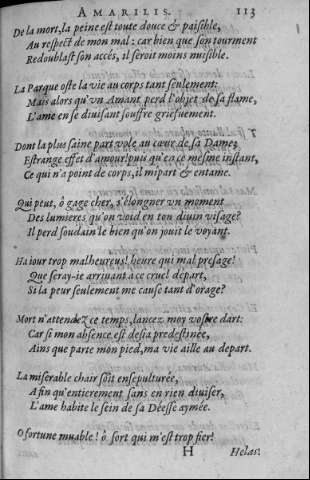 AMARILIS. 113
De la mort, la peine est toute douce & paisible,
Au respect de mon mal: car bien que son tourment
Redoublast son accés, il seroit moins nuisible.
La Parque oste la vie au corps tant seulement:
Mais alors qu'vn Amant perd l'objet de sa flame,
L'ame en se diuisant souffre griefuement.
Dont la plus saine part vole au cœur de sa Dame;
Estrange effet d'amour! puis qu'en ce mesme instant,
Ce qui n'a point de corps, il mipart & entame.
Qui peut, ô gage cher, s'élongner vn moment
Des lumieres qu'on void en ton diuin visage?
Il perd soudain le bien qu'on jouït le voyant.
Ha iour trop malheureus! heure qui mal presage!
Que seray-ie arriuant à ce cruel départ,
Si la peur seulement me cause tant d'orage?
Mort n'attendez ce temps, lancez moy vostre dart:
Car si mon absence est desia predestinée,
Ains que parte mon pied, ma vie aille au depart.
La miserable chair soit ensepulturée,
Afin qu'entierement sans en rien diuiser,
L'ame habite le sein de sa Déesse aymée.
O fortune muable! ô sort qui m'est trop fier!
H Helas!